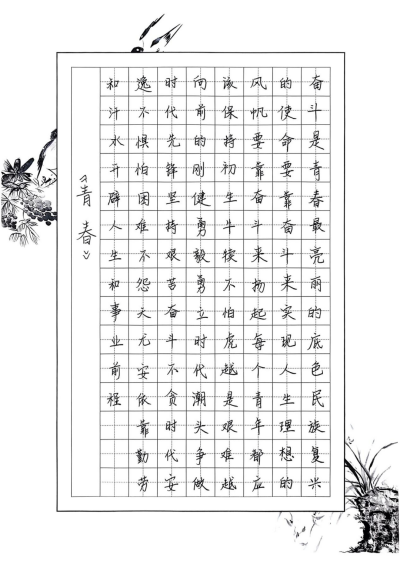 奋斗是青春最亮丽的底色民族复兴
的使命要靠奋斗来实现人生理想的
风帆要靠奋斗来扬起每个青年都应
该保持初生牛犊不怕虎越是艰难越
向前的刚健勇毅勇立时代潮头争做
时代先锋坚持艰苦奋斗不贪时代安
逸不惧怕困难不怨天尤安依靠勤劳
和汗水开辟人生和事业前程
《青春》